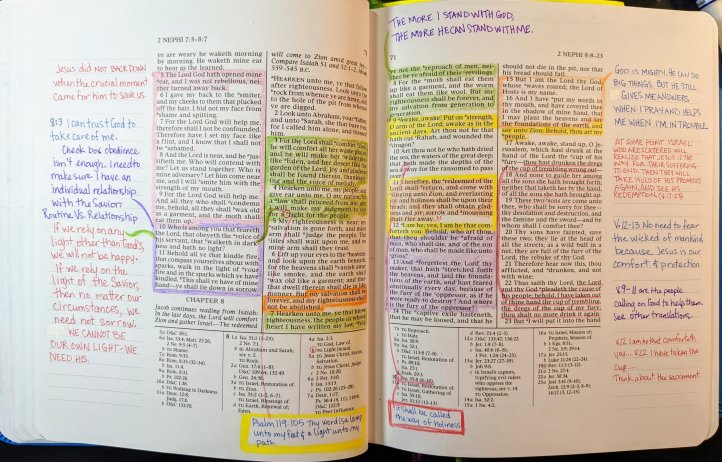 2 NEPHI 7:5–8:7
Jesus did NOT BACK DOWN
when the crucial moment
came for him to save us
8:3 I can trust God to
take care of me.
Check box obedience
isn't enough. I need to
make sure I have an
individual relationship
with the Savior.
Routine Vs. Relationship
If we rely on any
light other than God's
we will not be happy.
If we rely on the
light of the Savior,
then no matter our
circumstances, we
need not sorrow.
WE CANNOT BE
OUR OWN LIGHT–WE
NEED HIS.
ye are weary he waketh morning
by morning. He waketh mine ear
to hear as the learned.
5 The Lord God hath opened mine
ear, and I was not rebellious, nei-
ther turned away back.
6 I gave my back to the smiter,
and my cheeks to them that plucked
off the hair. I hid not my face from
shame and spitting.
7 For the Lord God will help me,
therefore shall I not be confounded.
Therefore have I set my face like
a flint, and I know that I shall not
be ashamed.
8 And the Lord is near, and he
me. Who will contend with
me? Let us stand together. Who is
mine adversary? Let him come near
me, and I will smite him with the
strength of my mouth.
9 For the Lord God will help me.
And all they who shall condemn
me, behold, all they shall wax old
as a garment, and the moth shall
eat them up.
10 Who is among you that feareth
the Lord, that obeyeth the voice of
his servant, that walketh in dark-
ness and hath no light?
11 Behold all ye that kindle fire,
that compass yourselves about with
sparks, walk in the light of your
fire and in the sparks which ye have
kindled. This shall ye have of mine
hand—ye shall lie down in sorrow.
CHAPTER 8
Jacob continues reading from Isaiah:
In the last days, the Lord will comfort
Zion and gather Israel—The redeemed
will come to Zion amid great joy—
Compare Isaiah 51 and 52:1–2. About
559–545 B.C.
HEARKEN unto me, ye that follow
after righteousness. Look unto the
rock from whence ye are hewn, and
to the hole of the pit from whence
ye are digged.
2 Look unto Abraham, your father,
and unto Sarah, she that bare you;
for I called him alone, and blessed
him.
3 For the Lord shall comfort Zion,
he will comfort all her waste places;
and he will make her wilderness
like Eden, and her desert like the
garden of the Lord. Joy and gladness
shall be found therein, thanksgiv-
ing and the voice of melody.
4 Hearken unto me, my people; and
give ear unto me, O my nation; for
a law shall proceed from me, and
I will make my judgment to rest
for a light for the people.
5 My righteousness is near; my
salvation is gone forth, and mine
arm shall judge the people. The
isles shall wait upon me, and on
mine arm shall they trust.
6 Lift up your eyes to the heavens,
and look upon the earth beneath;
for the heavens shall vanish away
like smoke, and the earth shall
wax old like a garment; and they
that dwell therein shall die in like
manner. But my salvation shall be
forever, and my righteousness shall
not be abolished.
7 Hearken unto me, ye that know
righteousness, the people in whose
heart I have written my law,
Psalm 119:105 Thy word is a lamp
unto my feet & a light unto my
path.
THE MORE I STAND WITH GOD,
THE MORE HE CAN STAND WITH ME.
71
2 NEPHI 8:8–23
ye not the reproach of men, nei-
ther be ye afraid of their revilings.
8 For the moth shall eat them
up like a garment, and the worm
shall eat them like wool. But my
righteousness shall be forever, and
my salvation from generation to
generation.
9 Awake, awake! Put on strength,
O arm of the Lord; awake as in the
ancient days. Art thou not he that
hath cut Rahab, and wounded the
dragon?
10 Art thou not he who hath dried
the sea, the waters of the great deep;
that hath made the depths of the
sea a way for the ransomed to pass
over?
11 Therefore, the redeemed of the
Lord shall return, and come with
singing unto Zion; and everlasting
joy and holiness shall be upon their
heads; and they shall obtain glad-
ness and joy; sorrow and mourning
shall flee away.
12 I am he; yea, I am he that com-
forteth you. Behold, who art thou,
that thou shouldst be afraid of
man, who shall die, and of the son
of man, who shall be made like unto
grass?
13 And forgettest the Lord thy
maker, that hath stretched forth
the heavens, and laid the founda-
tions of the earth, and hast feared
continually every day, because of
the fury of the oppressor, as if he
were ready to destroy? And where
is the fury of the oppressor?
14 The captive exile hasteneth,
that he may be loosed, and that he
should not die in the pit, nor that
his bread should fail.
15 But I am the Lord thy God,
whose waves roared; the Lord of
Hosts is my name.
16 And I have put my words in
thy mouth, and have covered thee
in the shadow of mine hand, that
I may plant the heavens and lay
the foundations of the earth, and
say unto Zion: Behold, thou art my
people.
17 Awake, awake, stand up, O Je-
rusalem, which hast drunk at the
hand of the Lord the cup of his
fury—thou hast drunken the dregs
of the cup of trembling wrung out—
18 And none to guide her among
all the sons she hath brought forth;
neither that taketh her by the hand,
of all the sons she hath brought up.
19 These two sons are come unto
thee, who shall be sorry for thee—
thy desolation and destruction, and
the famine and the sword—and by
whom shall I comfort thee?
20 Thy sons have fainted, save
these two; they lie at the head of
all the streets; as a wild bull in a
net, they are full of the fury of the
Lord, the rebuke of thy God.
21 Therefore hear now this, thou
afflicted, and drunken, and not
with wine:
22 Thus saith thy Lord, the Lord
and thy God pleadeth the cause of
his people; behold, I have taken out
of thine hand the cup of trembling,
the dregs of the cup of my fury;
thou shalt no more drink it again.
23 But I will put it into the hand
GOD IS MIGHTY. HE CAN DO
BIG THINGS. BUT HE STILL
GIVES ME ANSWERS
WHEN I PRAY AND HELPS
ME WHEN I'M IN TROUBLE.
AT SOME POINT, ISRAEL
WHO ARE SCATTERED WILL
REALIZE THAT JESUS IS THE
WAY FOR THEIR SUFFERING
TO END. THEN THEY WILL
TAKE HOLD OF HIS PROMISES
AGAIN, AND SEE HIS
REDEMPTION. (V. 17-23)
V. 12-13 No need to fear
the wicked of mankind
because Jesus is our
comfort & protection
V. 9-11 are the people
calling on God to help them.
See other translations.
V. 12 I am he that comforteth
you... V. 22 I have taken the
cup...
Think about the sacrament
shall be called
the way of holiness